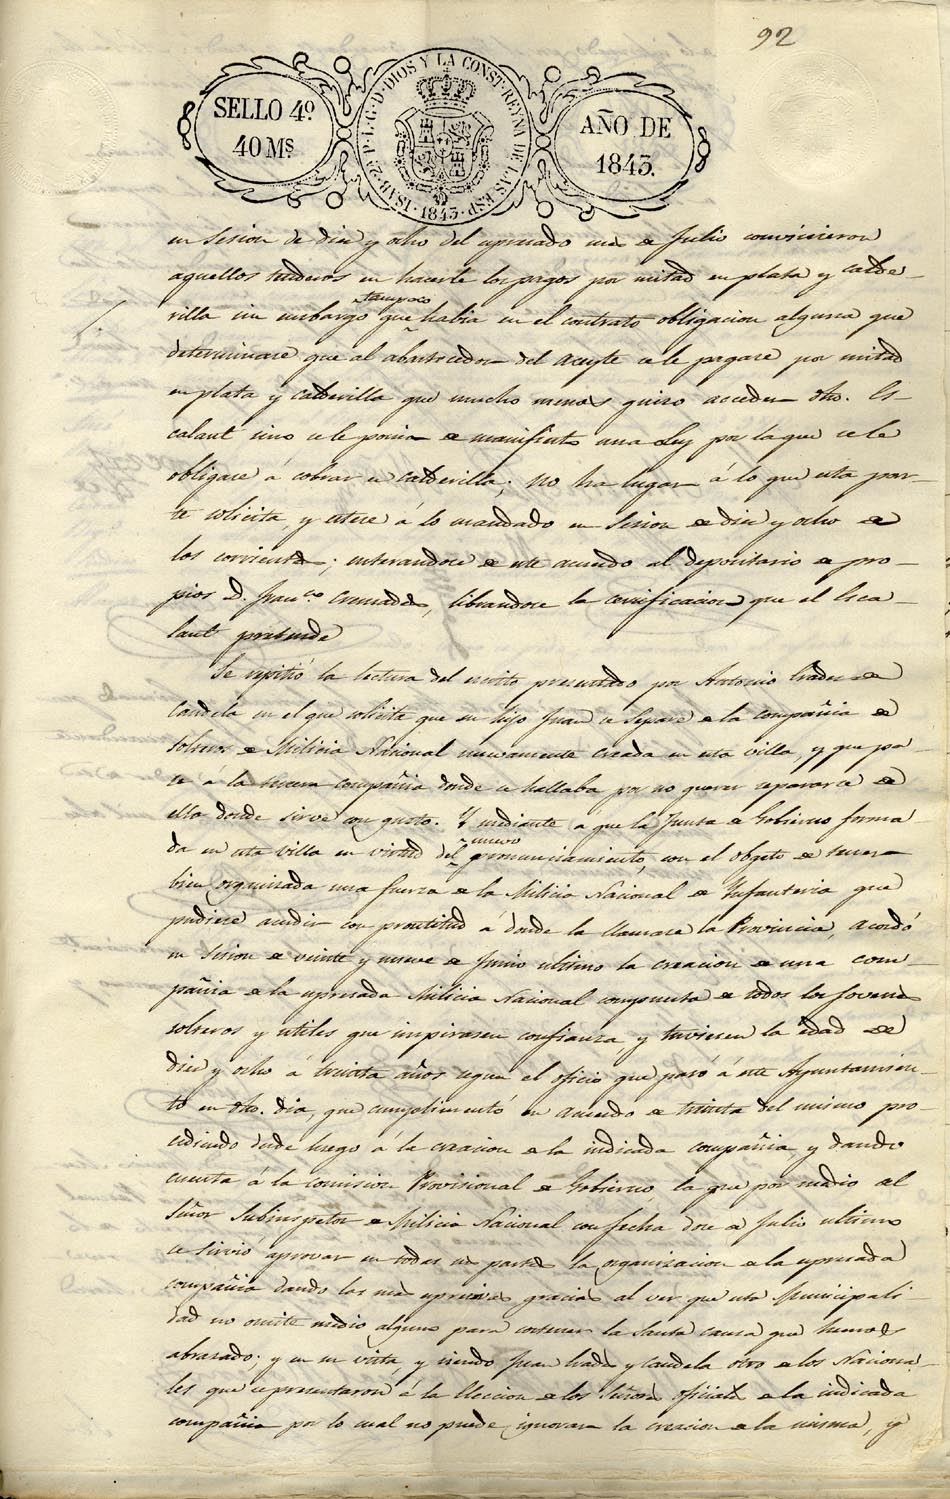 92
SELLO 4º
40 Ms.
ISAB. 2ª P. L. G. D. DIOS Y LA CONST. REYNA DE LAS ESP.
1843
AÑO DE
1843.
en Sesion de diez y ocho del espresado mes de Julio convinieron
aquellos tenderos en hacerle los pagos por mitad en plata y calde-
rilla sin embargo que tampoco habia en el contrato obligacion alguna que
determinase que al abastecedor del Aceyte se le pagase por mitad
en plata y calderilla que mucho menos quiso acceder dho. Es-
calant sino se le ponia de manifiesto una Ley por la que se le
obligase á cobrar en calderilla; No ha lugar á lo que esta par-
te solicita, y estese á lo mandado en Sesion de diez y ocho de
los corrientes; enterandose de este acuerdo al depositario de pro-
pios D. Franco. librandose la certificacion que el Esca-
lant pretende
Se repitió la lectura del escrito presentado por Antonio
Candela en el que solicita que su hijo Juan se separe de la compañia de
solteros de Milicia Nacional nuevamente creada en esta villa, y que pa-
se á la tercera compañia donde se hallaba por no querer separarse de
ella donde sirve con gusto. Y mediante a que la Junta de Gobierno forma-
da en esta villa en virtud del nuevo pronunciamiento, con el objeto de tener
bien organizada una fuerza de la Milicia Nacional de Infanteria que
pudiese acudir con prontitud á donde la llamase la Provincia, acordó
en Sesion de veinte y nueve de Junio ultimo la creacion de una com-
pañia de la espresada Milicia Nacional compuesta de todos los Jovenes
solteros y utiles que inspirasen confianza y tuviesen la edad de
diez y ocho á treinta años segun el oficio que pasó á este Ayuntamien-
to en dho. dia, que cumplimentó en acuerdo de treinta del mismo pro-
cediendo desde luego á la creacion de la indicada compañia y dando
cuenta á la comision Provisional de Gobierno, la que por medio del
Señor Subinspector de Milicia Nacional con fecha doce de Julio ultimo
se sirvió aprovar en todas sus partes la organizacion de la espresada
compañia dando las mas espresivas gracias al ver que esta Municipali-
dad no omite medio alguno para sostener la Santa causa que hemos
abrazado; y en su vista, y siendo Juan y Candela otro de los Naciona-
les que se presentaron á la Eleccion de los Señores oficiales de la indicada
compañia por lo cual no puede ignorar la creacion de la misma, y